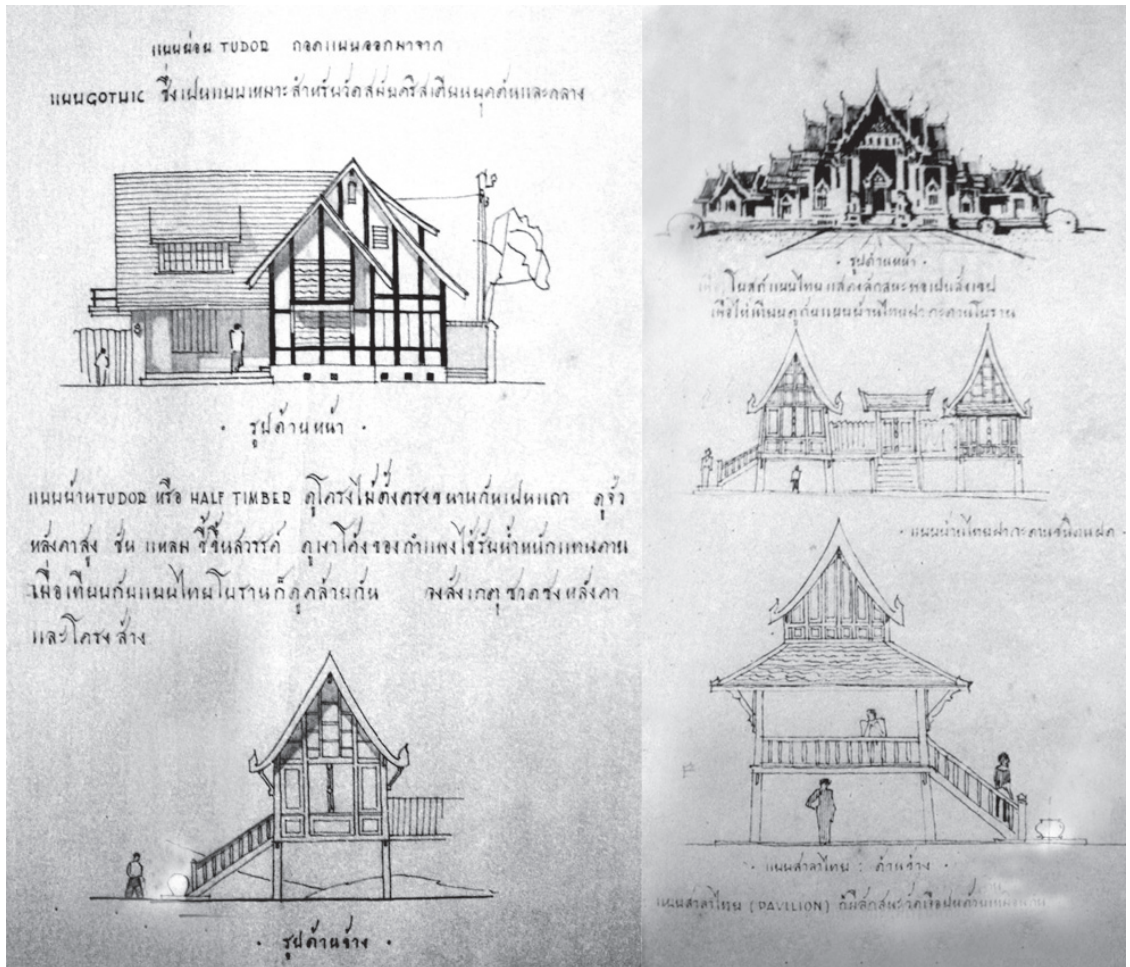 แบบผ่อน TUDOR ถอดแบบออกมาจาก
แบบ GOTHIC ซึ่งเป็นแบบเหมาะสำหรับวัดสมัยคริสเตียนยุคต้นและกลาง
· รูปด้านหน้า ·
แบบบ้าน TUDOR หรือ HALF TIMBER ดูโครงไม้ตั้งตรงขนานกันเป็นแถว ดูจั่ว
หลังคาสูง ชัน แหลม ชี้ขึ้นสวรรค์ ดูเงาโค้งของกำแพงใช้รับน้ำหนักแทนคาน
เมื่อเทียบกับแบบไทยโบราณก็ดูคล้ายกัน จงสังเกตุชวดชงหลังคา
และโครงสร้าง
· รูปด้านข้าง ·
· รูปด้านหน้า ·
โบสถ์แบบไทย แสดงลักษณะพอเป็นสังเขป
เพื่อให้เทียบดูกับแบบบ้านไทยฝากะดานโบราณ
· แบบบ้านไทยฝากะดานชนิดแฝด ·
· แบบศาลาไทย : ด้านข้าง ·
แบบศาลาไทย (PAVILION) ก็มีลักษณะ